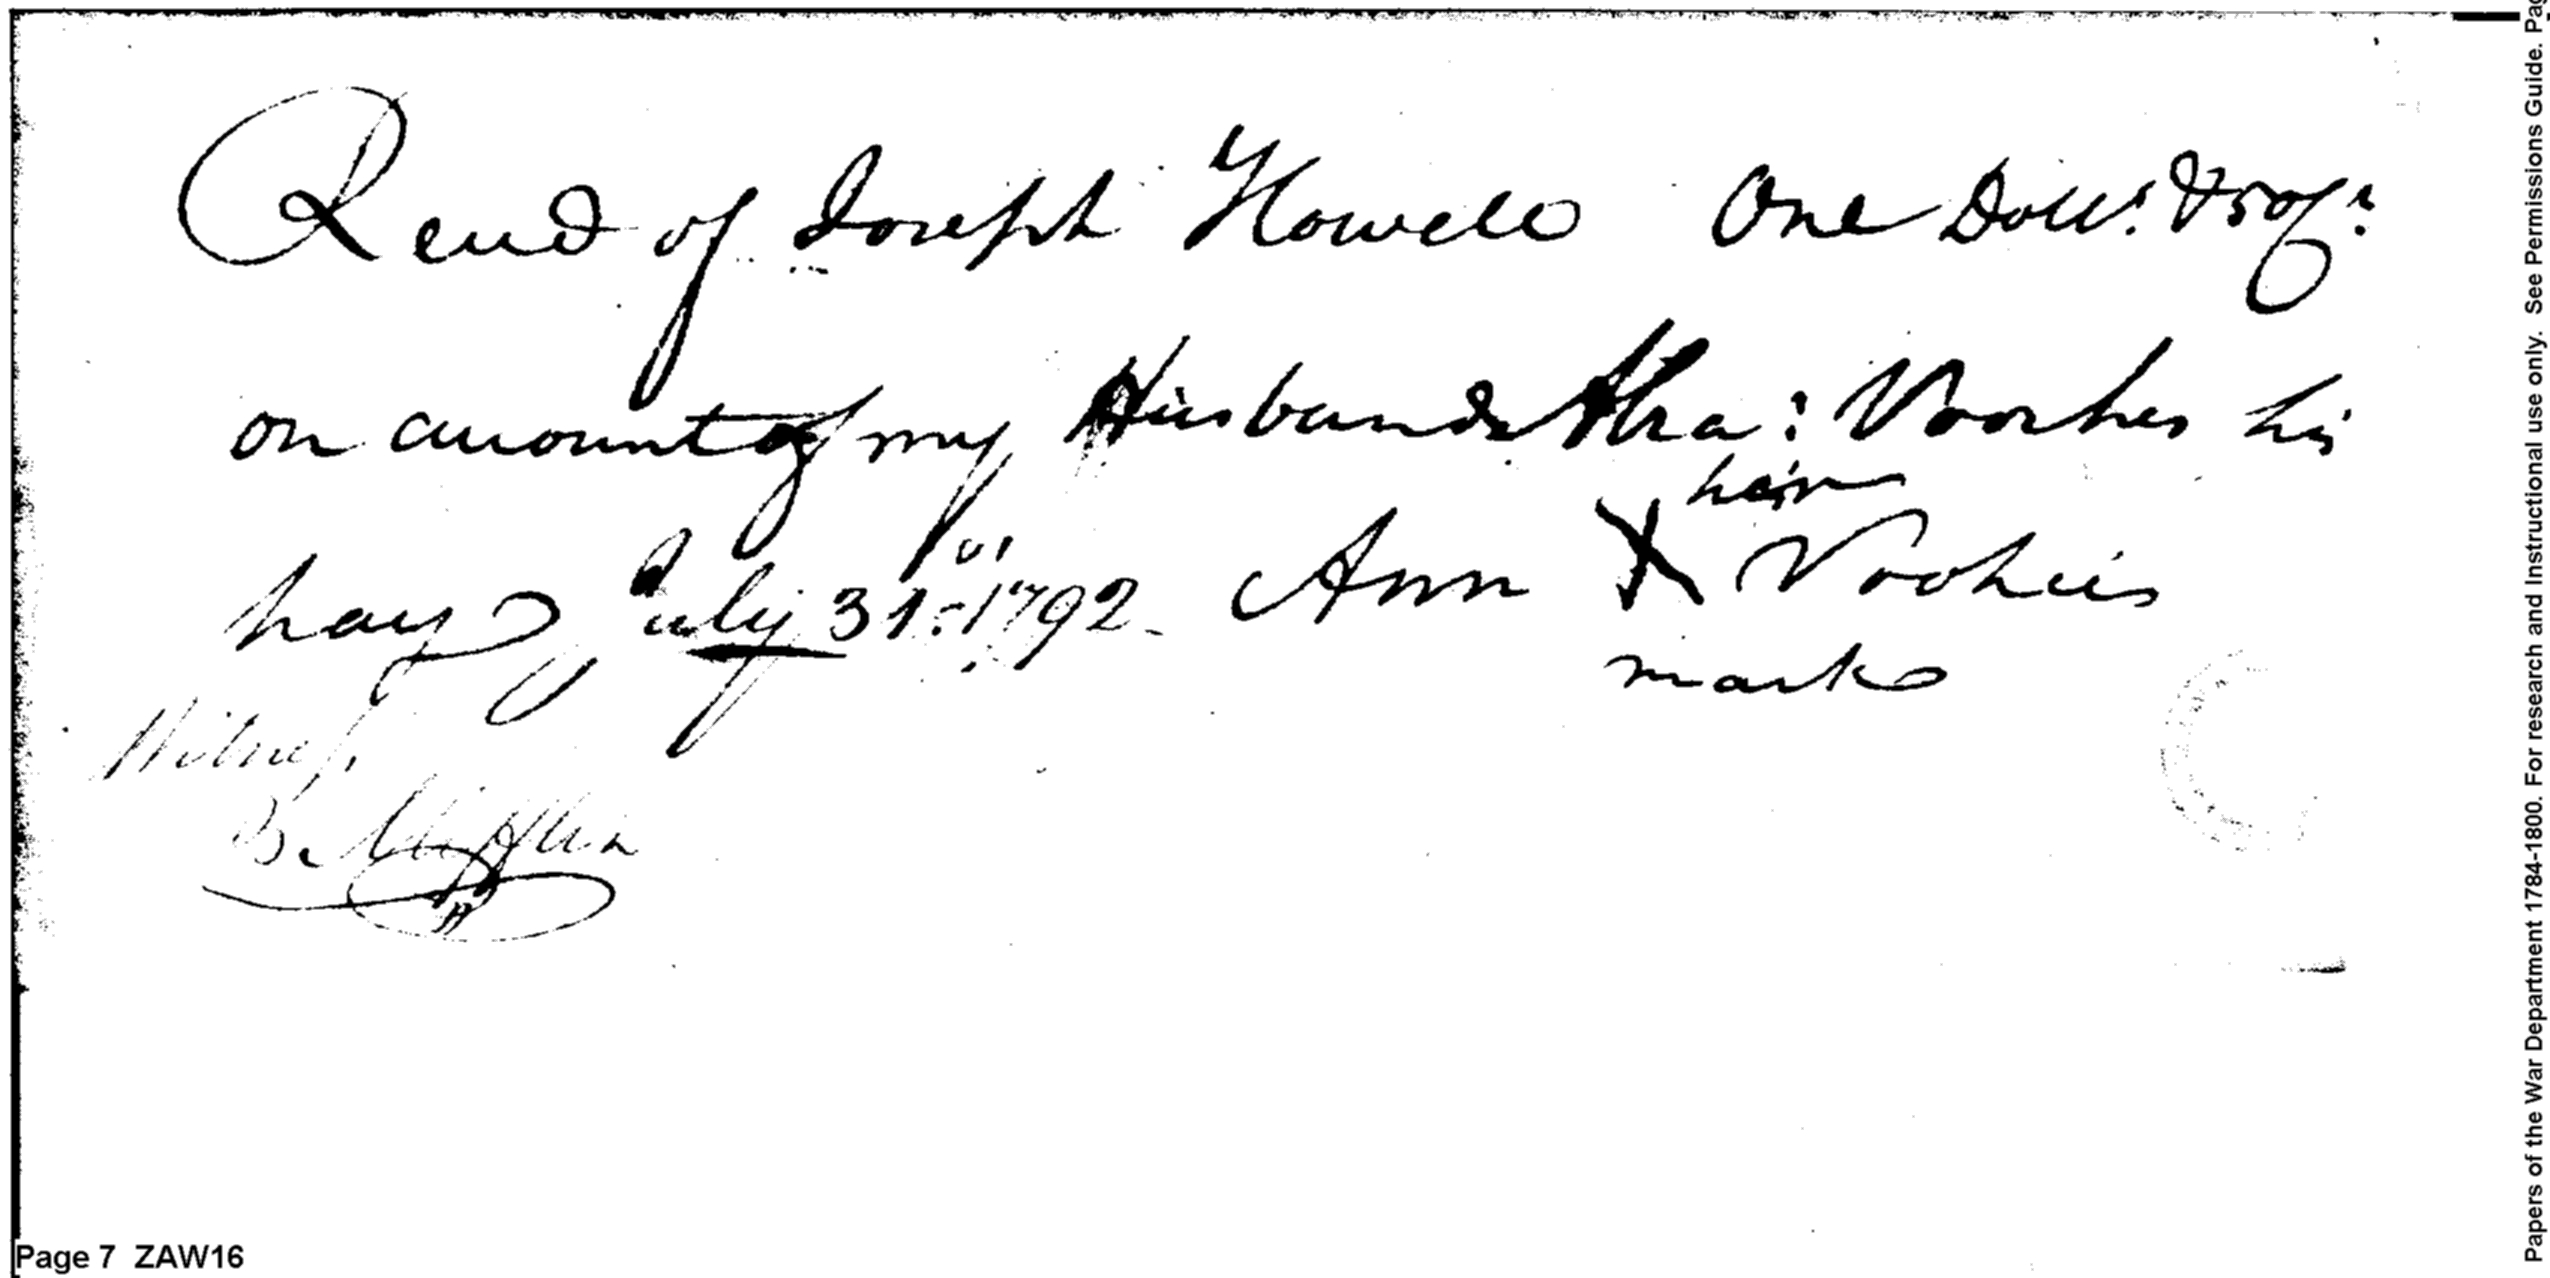 Recd of Joseph Howell One Dollr.
on account of my Husband Abra: Voorhes his
her
pay July 31st 1792. Ann X Voohies
mark
Witness
B. Mifflin
Page 7 ZAW16
Papers of the War Department 1784-1800. For research and Instructional use only. See Permissions Guide.